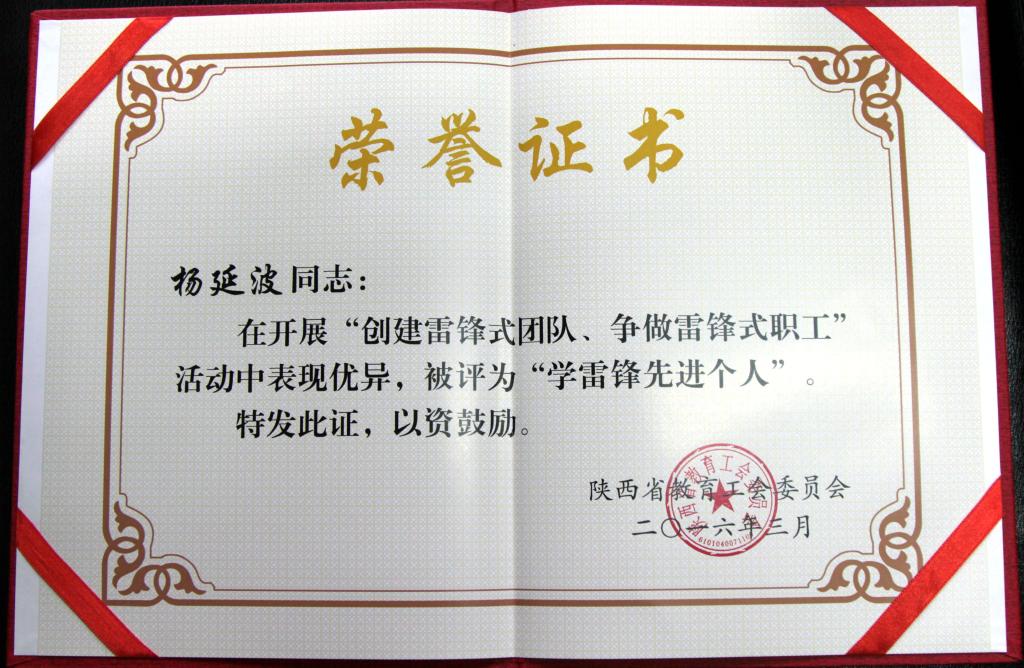 荣誉证书
杨延波同志：
在开展“创建雷锋式团队、争做雷锋式职工”
活动中表现优异，被评为“学雷锋先进个人”。
特发此证，以资鼓励。
陕西省教育工会委员会
二〇一六年三月
陕西省教育工会委员会